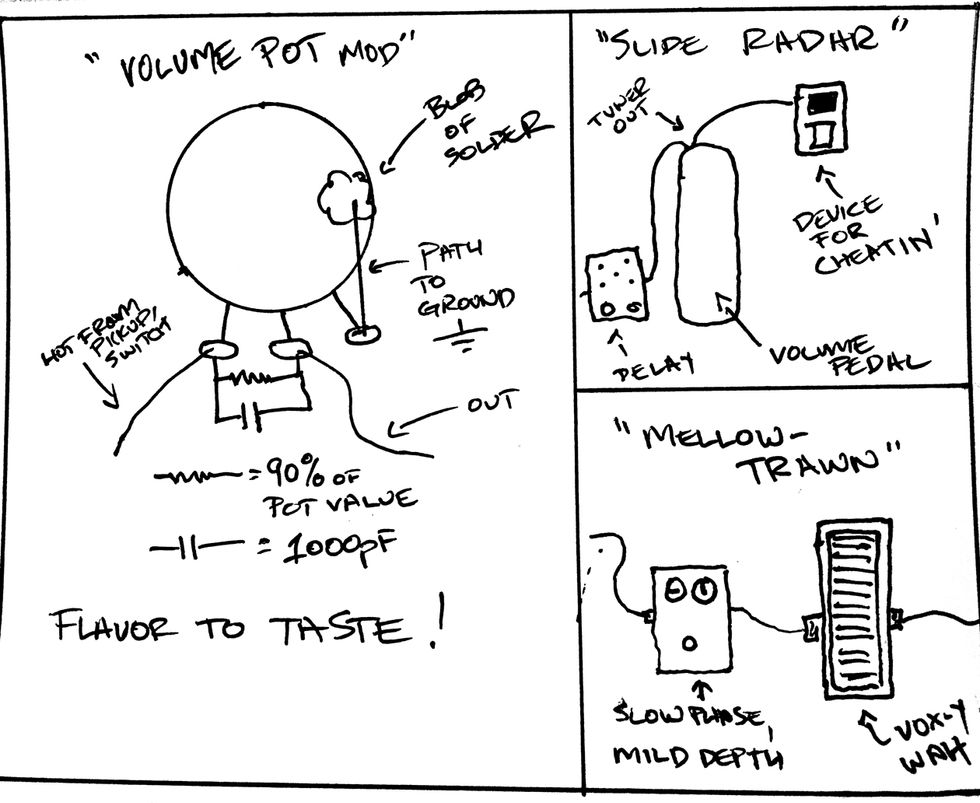 "VOLUME POT MOD"
BLOB
OF
SOLDER
PATH
TO
GROUND
HOT FROM
PICKUP/
SWITCH
OUT
= 90% OF
POT VALUE
= 1000pF
FLAVOR TO TASTE!
"SLIDE RADAR"
TUNER
OUT
DEVICE
FOR
CHEATIN'
DELAY
VOLUME
PEDAL
"MELLOW-
TRAWN"
SLOW PHASE,
MILD DEPTH
VOX-Y
WAH